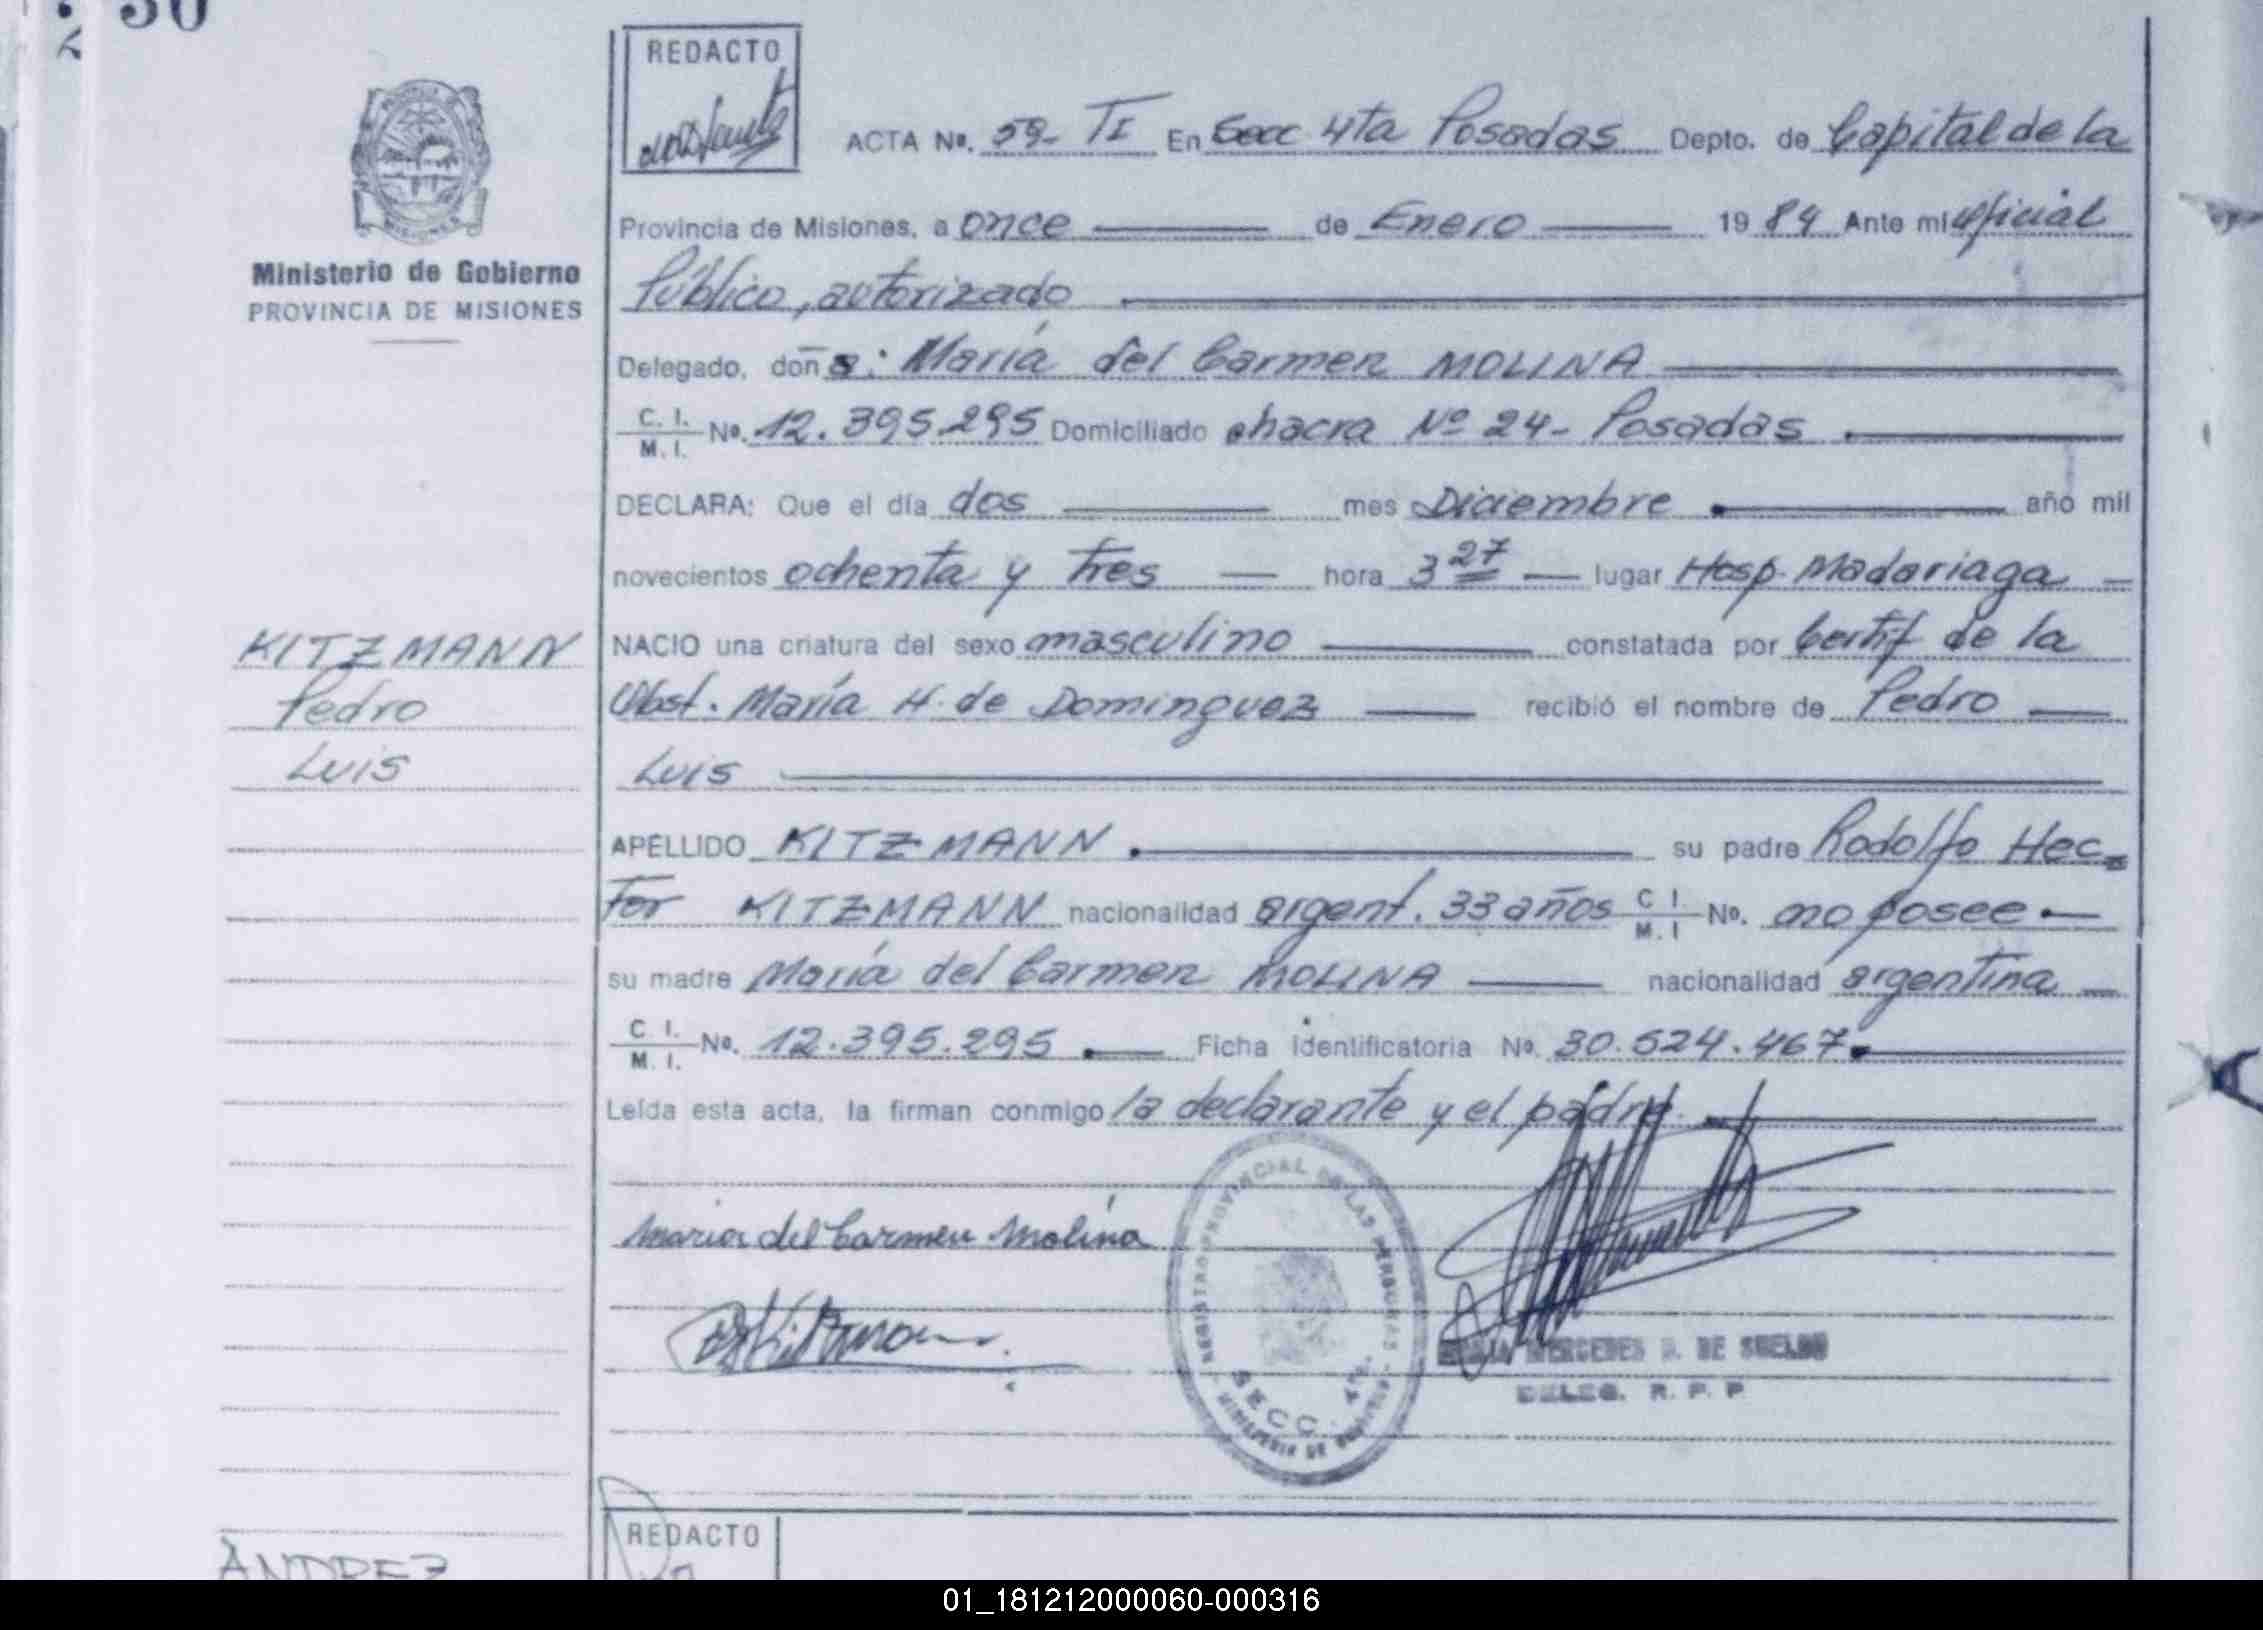 30
REDACTO
ACTA No. 59- TI En Secc 4ta Posadas Depto. de Capital de la
Provincia de Misiones, a once de Enero 1984 Ante mi Oficial
Público, autorizado
Ministerio de Gobierno
PROVINCIA DE MISIONES
Delegado, doña: María del Carmen MOLINA
C. I. / M. I. No. 12.395.295 Domiciliado chacra Nº 24- Posadas
DECLARA: Que el día dos mes Diciembre año mil
novecientos ochenta y tres hora 3 27 lugar Hosp. Madariaga
NACIO una criatura del sexo masculino constatada por Certif de la
Obst. María H. de Dominguez recibió el nombre de Pedro
Luis
KITZMANN
Pedro
Luis
APELLIDO KITZMANN su padre Rodolfo Hec=
tor KITZMANN nacionalidad argent. 33 años C I / M. I No. no posee
su madre María del Carmen MOLINA nacionalidad argentina
C. I. / M. I. No. 12.395.295 Ficha identificatoria No. 30.524.467
Leída esta acta, la firman conmigo la declarante y el padre.
Maria del Carmen Molina
REGISTRO PROVINCIAL DE LAS PERSONAS
SECC. 4ta.
MINISTERIO DE GOBIERNO
MERCEDES D. DE SUELDO
DELEG. R. P. P
REDACTO
ANDREZ
01_181212000060-000316